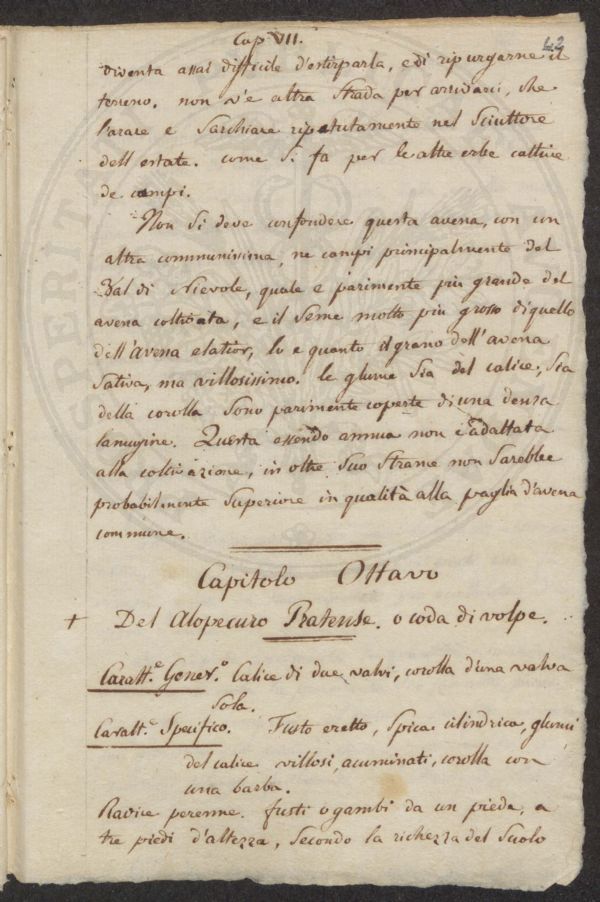 Cap VII.
42
diventa assai difficile d'estirparla, e di ripurgarne il
terreno. non v'è altra strada per arrivarci, che
l'arare e sarchiare ripetutamente nel sciuttore
dell'estate. come si fa per le altre erbe cattive
de campi.
Non si deve confondere questa avena, con un
altra communissima, ne campi principalmente del
Val di Nievole, quale e parimente più grande del
avena coltivata, e il seme molto più grosso di quello
dell'avena elatior, lo e quanto il grano dell'avena
sativa, ma villosissimo. le glume sia del calice, sia
della corolla sono parimente coperte di una densa
lanugine. Questa essendo annua non è adattata
alla coltivazione, in oltre suo strame non sarebbe
probabilmente superiore in qualità alla paglia d'avena
commune.
Capitolo Ottavo
+ Del Alopecuro Pratense. o coda di volpe.
Caratt.e Gener.o Calice di due valvi, corolla d'una valva
sola.
Caratt.e Specifico. Fusto eretto, spica cilindrica, glumi
del calice villosi, acuminati, corolla con
una barba.
Radice perenne. fusti o gambi da un piede, a
tre piedi d'altezza, secondo la richezza del suolo